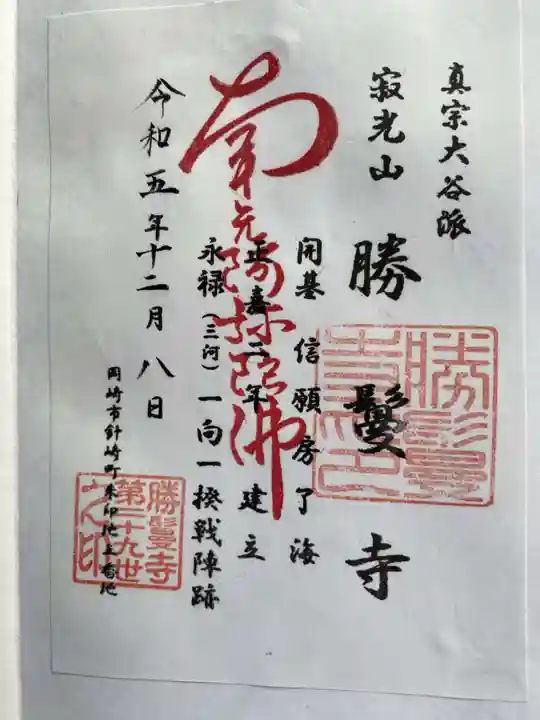 真宗大谷派
寂光山
勝鬘寺
勝鬘寺印
開基 信願房了海
正嘉二年 建立
永禄(三河)一向一揆戦陣跡
南無阿弥陀佛
令和五年十二月八日
勝鬘寺
第二十九世
之印
岡崎市針崎町朱印地上番地